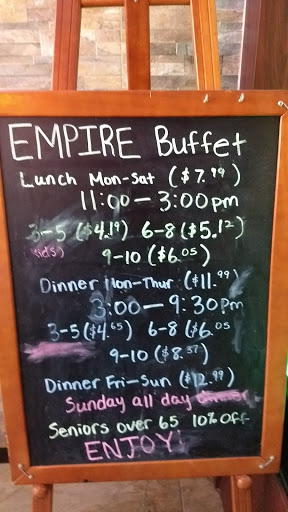 EMPIRE Buffet
Lunch Mon-Sat ($7.99)
11:00-3:00pm
3-5 ($4.19) 6-8 ($5.12)
Kid's) 9-10 ($6.05)
Dinner Mon-Thur ($11.99)
3:00-9:30pm
3-5 ($4.65) 6-8 ($6.05
9-10 ($8.37)
Dinner Fri-Sun ($12.99)
Sunday all day Dinner
Seniors over 65 10% Off
ENJOY!